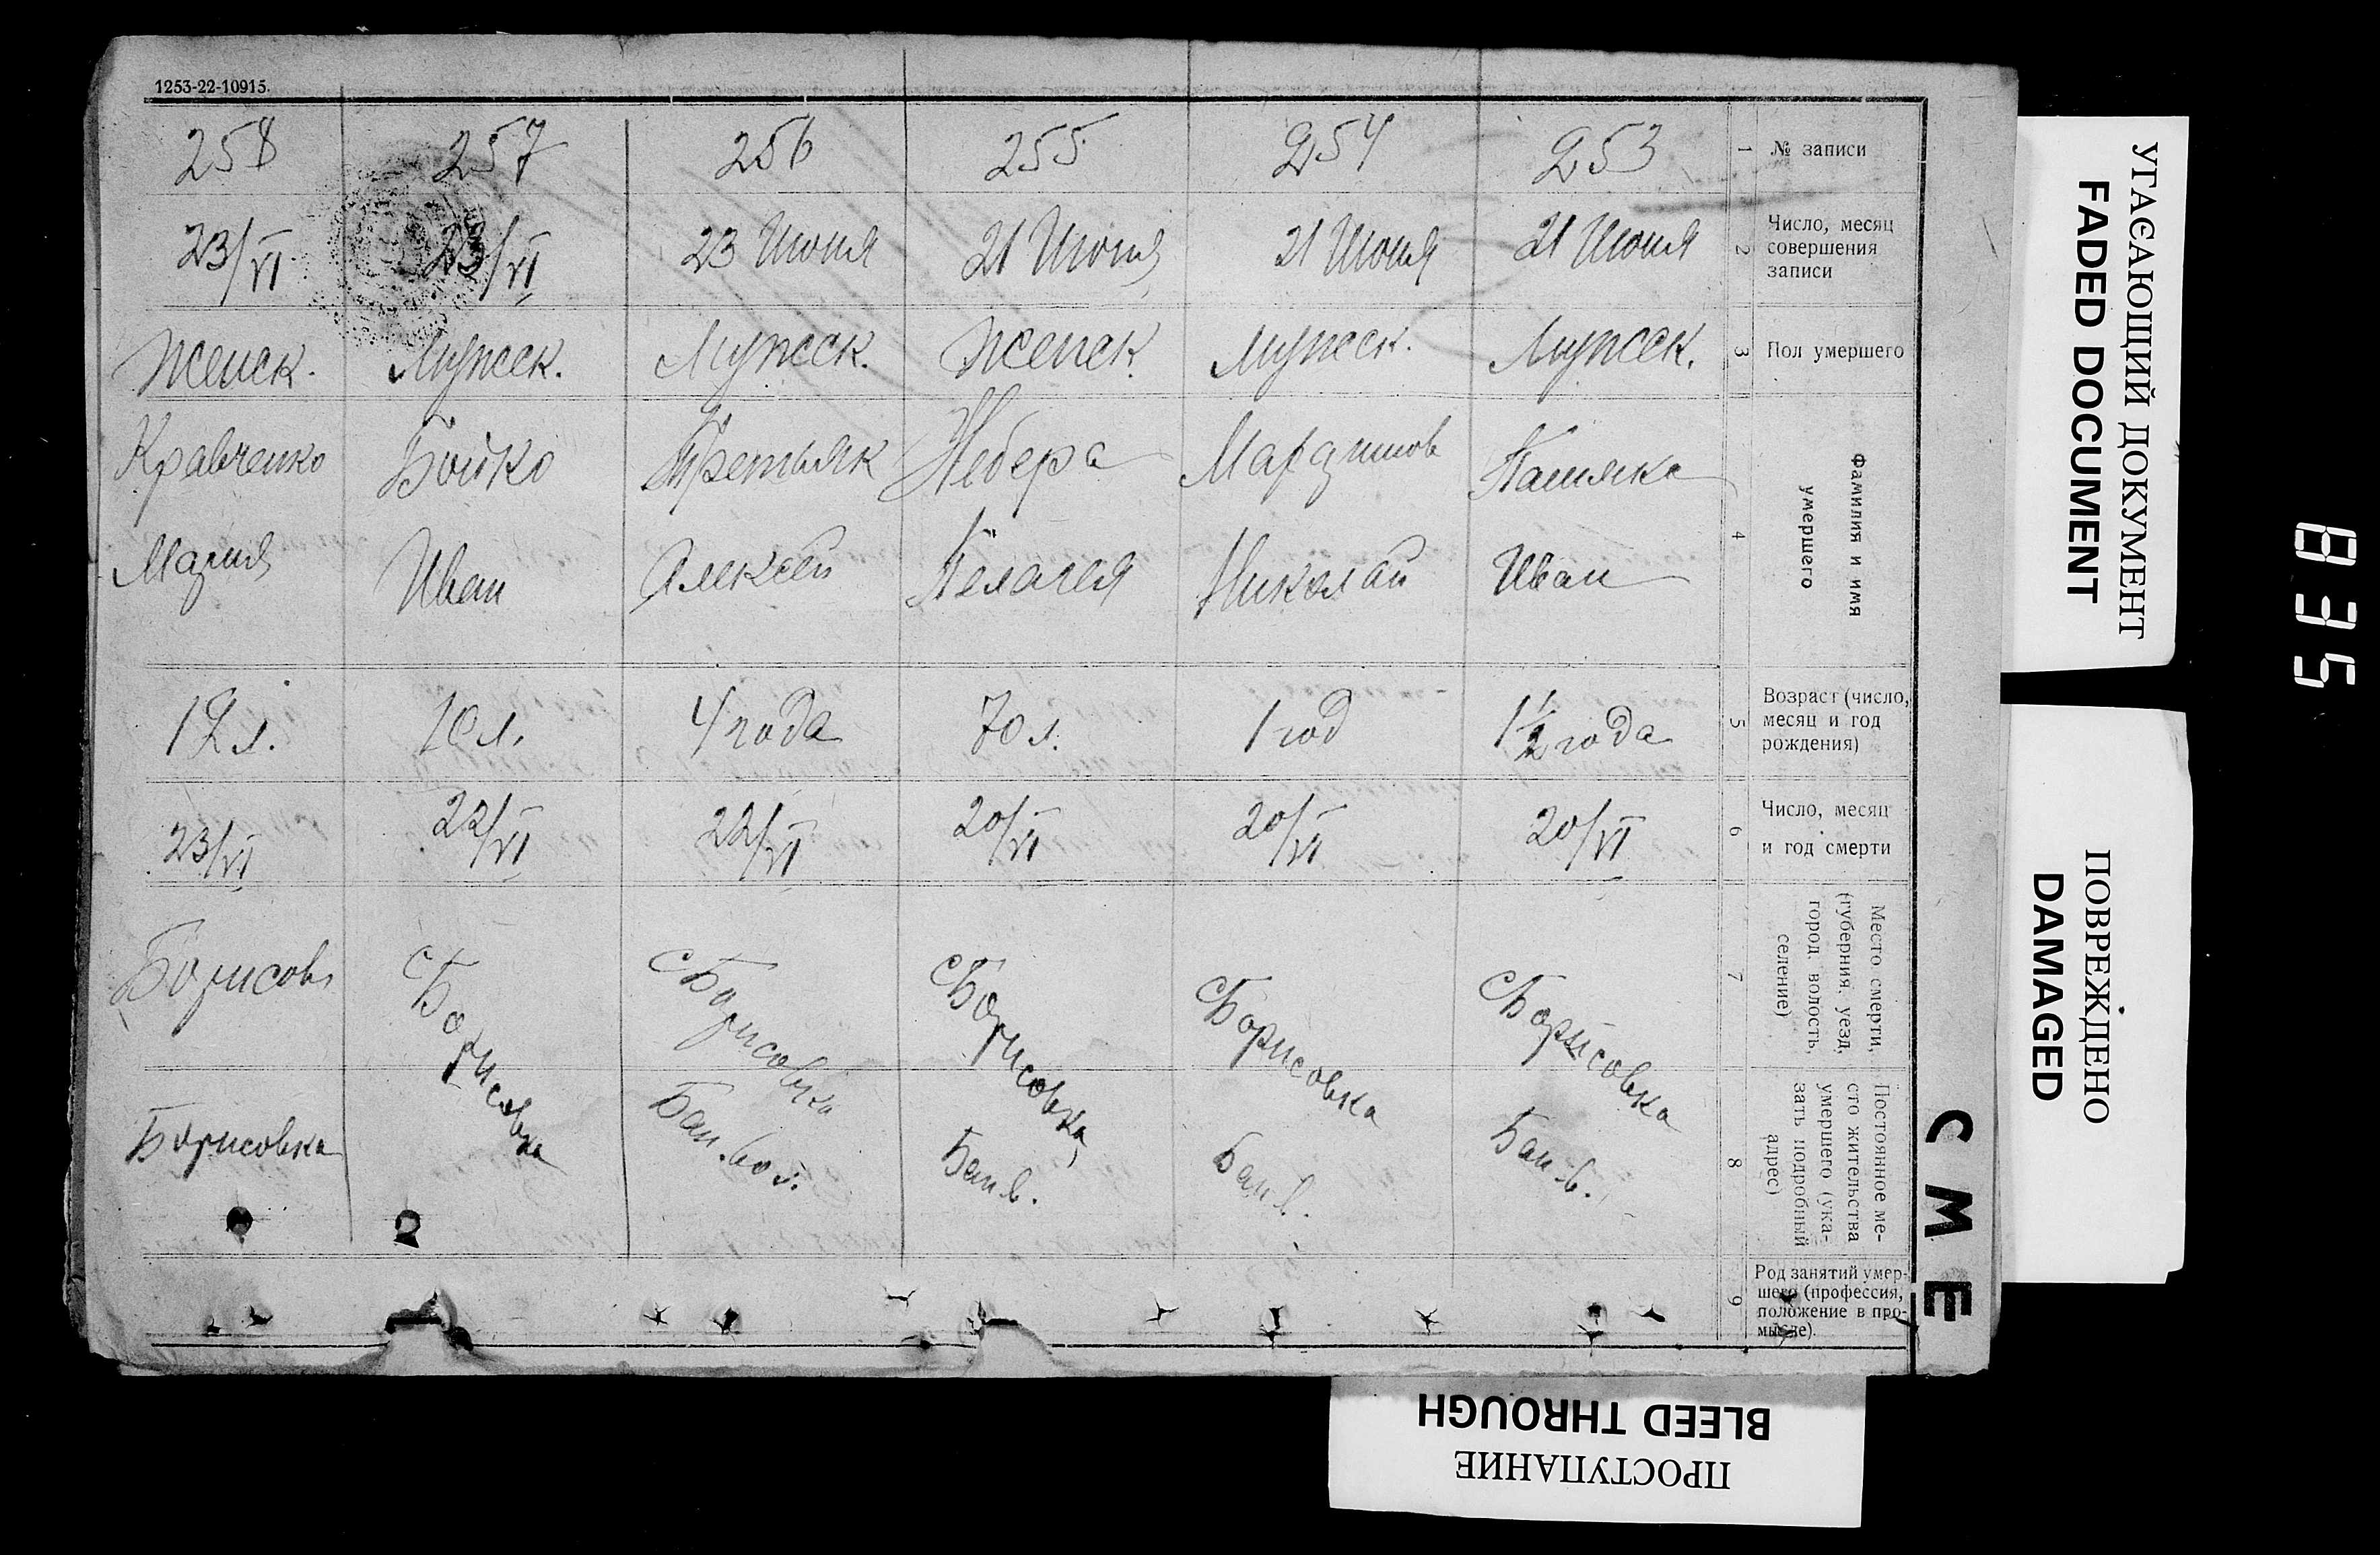 1253-22-10915.
258 257 256 255 254 253 1 № записи
23/VI 23/VI 23 Июня 21 Июня 21 Июня 21 Июня 2 Число, месяц
совершения
записи
Женск. Мужск. Мужск. Женск. Мужск. Мужск. 3 Пол умершего
Кравченко Бойко Третьяк Небера Мардинов 4 Фамилия и имя
умершего
Мария Иван Алексей Пелагея Николай Иван
12 л. 10 л. 4 года 70 л. 1 год 1½ года 5 Возраст (число,
месяц и год
рождения)
23/VI 22/VI 22/VI 20/VI 20/VI 20/VI 6 Число, месяц
и год смерти
Борисов с Борисовка с Борисовка с Борисовка с Борисовка с Борисовка 7 Место смерти,
(губерния, уезд,
город, волость,
селение)
Борисовка Бан. вол. Бан в. Бан в. Бан. в. 8 Постоянное ме-
сто жительства
умершего (ука-
зать подробный
адрес)
9 Род занятий умер-
шего (профессия,
положение в про-
мысле).
СМЕ
УГАСАЮЩИЙ ДОКУМЕНТ
FADED DOCUMENT
ПОВРЕЖДЕНО
DAMAGED
BLEED THROUGH
ПРОСТУПАНИЕ
835